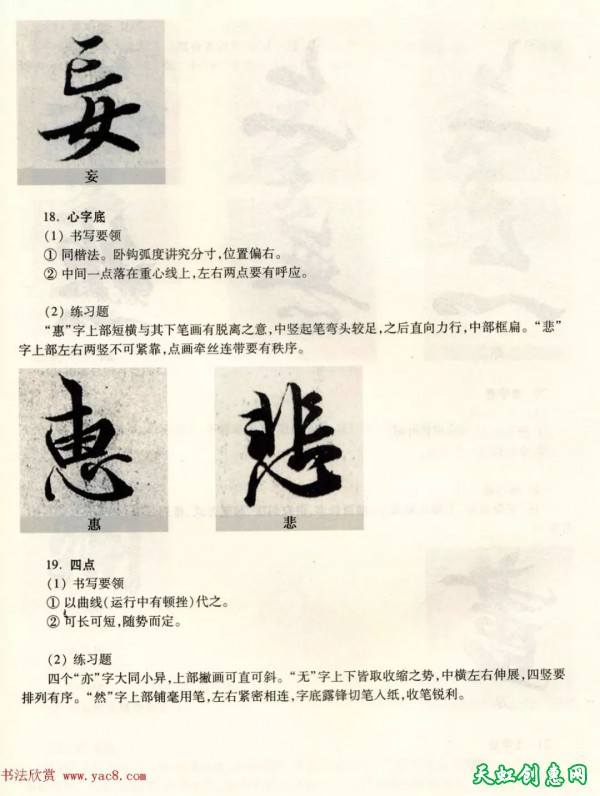 妄
妄
18. 心字底
(1) 书写要领
① 同楷法。卧钩弧度讲究分寸,位置偏右。
② 中间一点落在重心线上,左右两点要有呼应。
(2) 练习题
“惠”字上部短横与其下笔画有脱离之意,中竖起笔弯头较足,之后直向力行,中部框扁。“悲”
字上部左右两竖不可紧靠,点画牵丝连带要有秩序。
惠 悲
惠 悲
19. 四点
(1) 书写要领
① 以曲线(运行中有顿挫)代之。
② 可长可短,随势而定。
(2) 练习题
四个“亦”字大同小异,上部撇画可直可斜。“无”字上下皆取收缩之势,中横左右伸展,四竖要
排列有序。“然”字上部铺毫用笔,左右紧密相连,字底露锋切笔入纸,收笔锐利。
书法欣赏 www.yac8.com
天虹创惠网